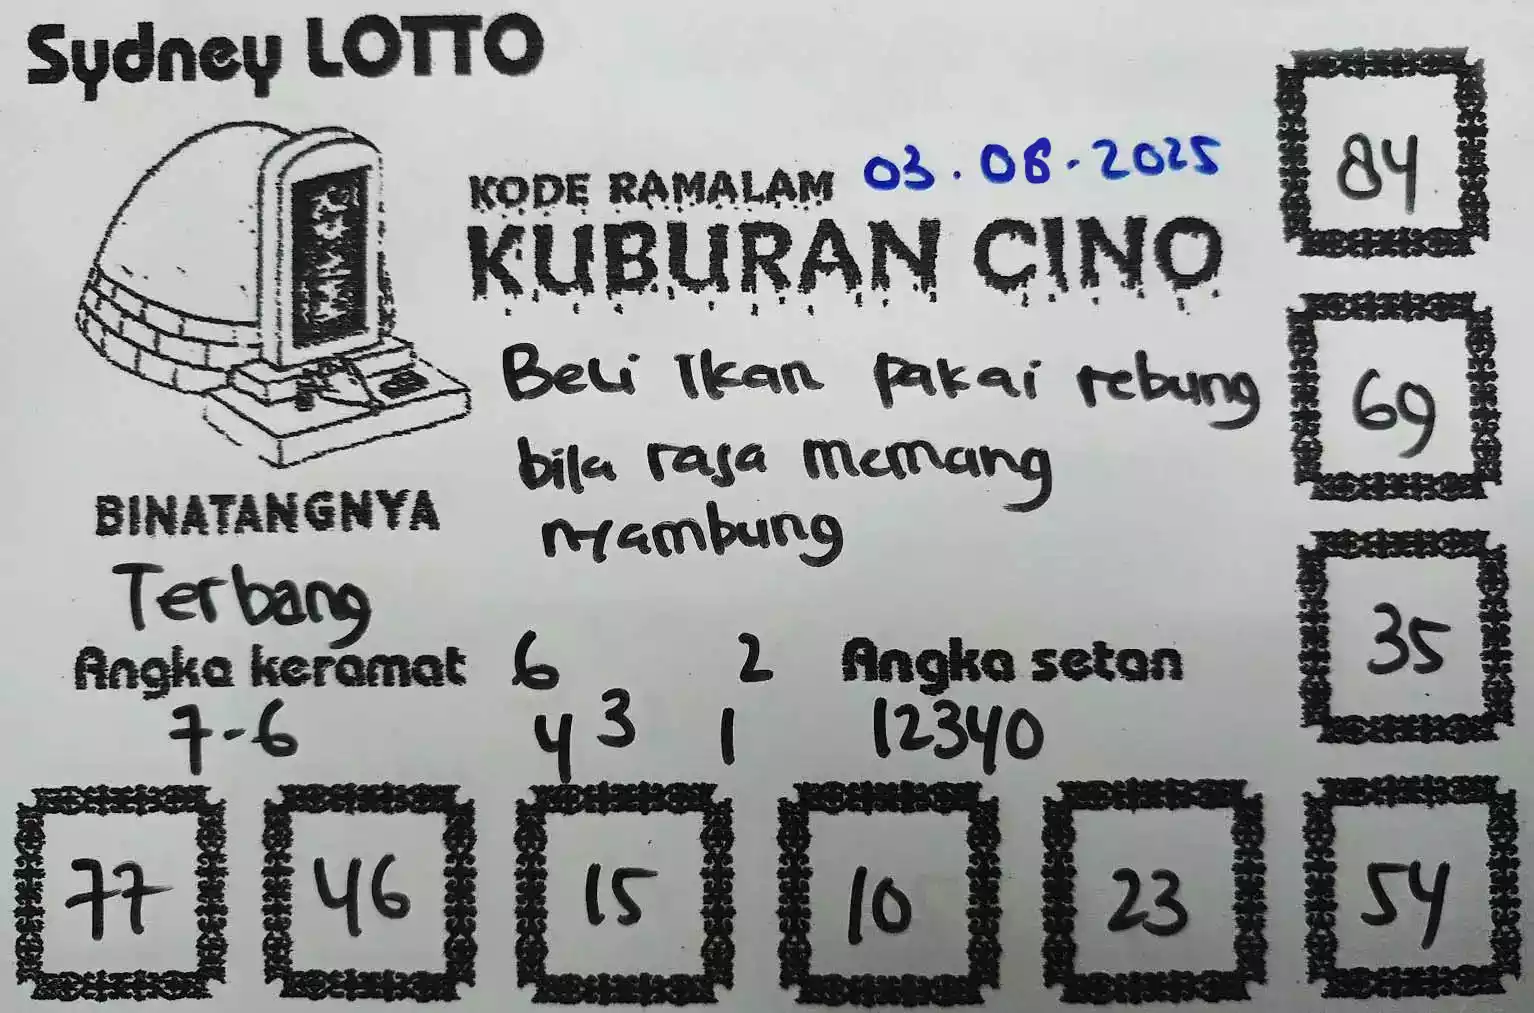 Sydney LOTTO
KODE RAMALAM 03.08.2025
KUBURAN CINO
Beli Ikan pakai rebung
bila rasa memang
nyambung
BINATANGNYA
Terbang
Angka keramat
7-6
6 2
4 3 1
Angka setan
12340
84
69
35
77 46 15 10 23 54